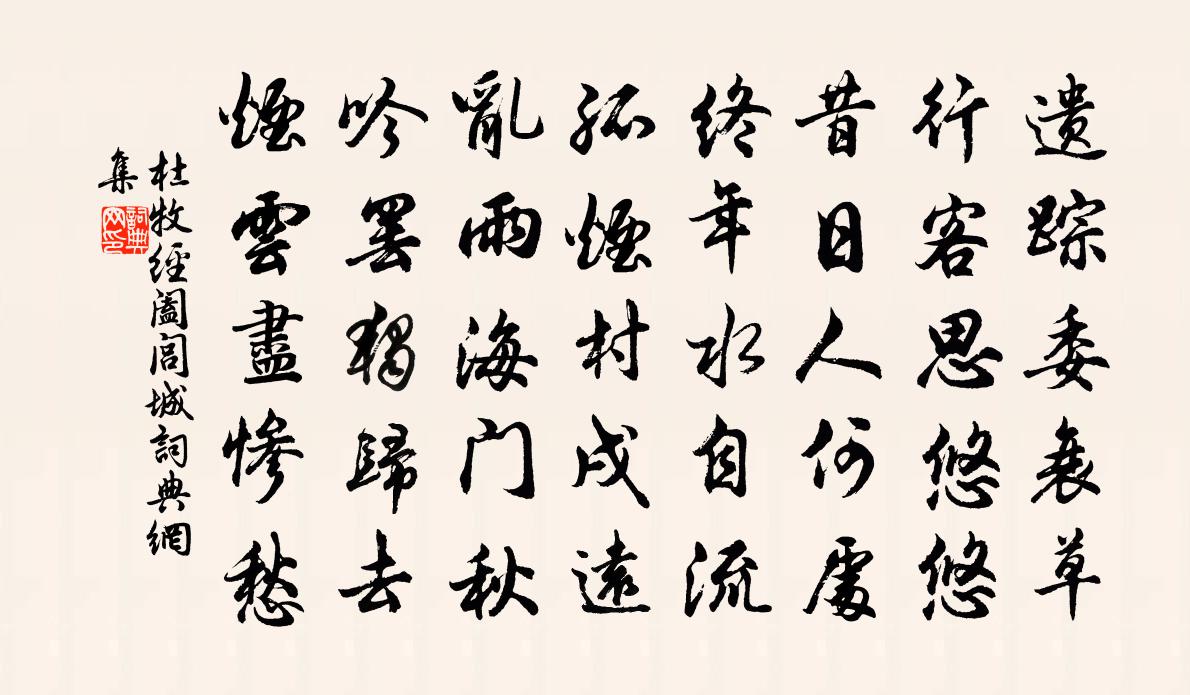 遗踪委衰草
行客思悠悠
昔日人何處
終年水自流
孤煙村戍遠
亂雨海门秋
吟罢獨歸去
煙雲盡慘愁
杜牧經闔閭城詞典網
集
詞典
网印